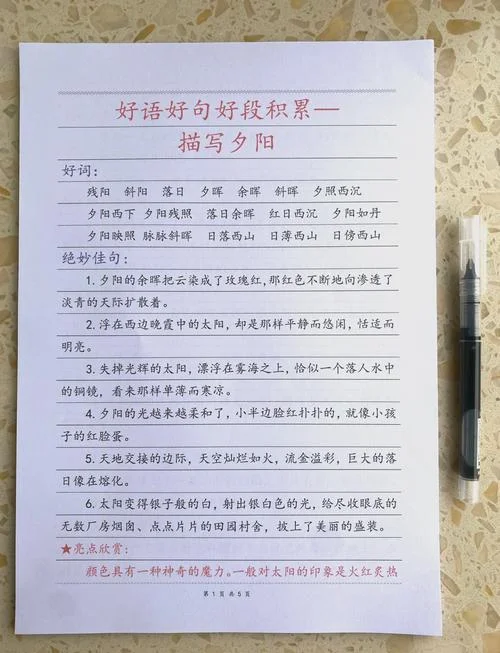 好语好句好段积累—
描写夕阳
好词：
残阳 斜阳 落日 夕晖 余晖 斜晖 夕照西沉
夕阳西下 夕阳残照 落日余晖 红日西沉 夕阳如丹
夕阳映照 脉脉斜晖 日落西山 日薄西山 日傍西山
绝妙佳句：
1. 夕阳的余晖把云染成了玫瑰红，那红色不断地向渗透了
淡青的天际扩散着。
2. 浮在西边晚霞中的太阳，却是那样平静而悠闲，恬适而
明亮。
3. 失掉光辉的太阳，漂浮在雾海之上，恰似一个落人水中
的铜镜，看来那样单薄而寒凉。
4. 夕阳的光越来越柔和了，小半边脸红扑扑的，就像小孩
子的红脸蛋。
5. 天地交接的边际，天空灿烂如火，流金溢彩，巨大的落
日像在熔化。
6. 太阳变得银子般的白，射出银白色的光，给尽收眼底的
无数厂房烟囱、点点片片的田园村舍，披上了美丽的盛装。
★亮点欣赏：
颜色具有一种神奇的魔力。一般对太阳的印象是火红炙热
第 1 页 共 5 页